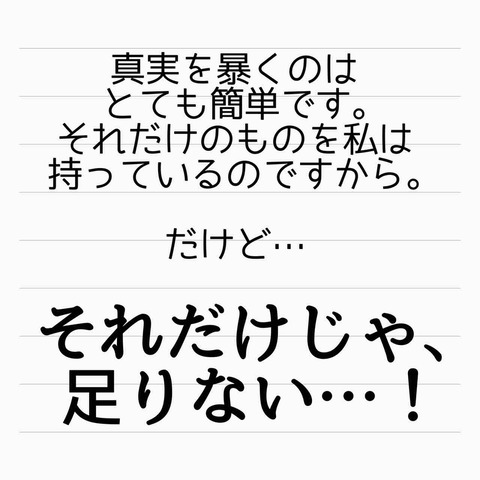 真実を暴くのは
とても簡単です。
それだけのものを私は
持っているのですから。
だけど…
それだけじゃ、
足りない…！